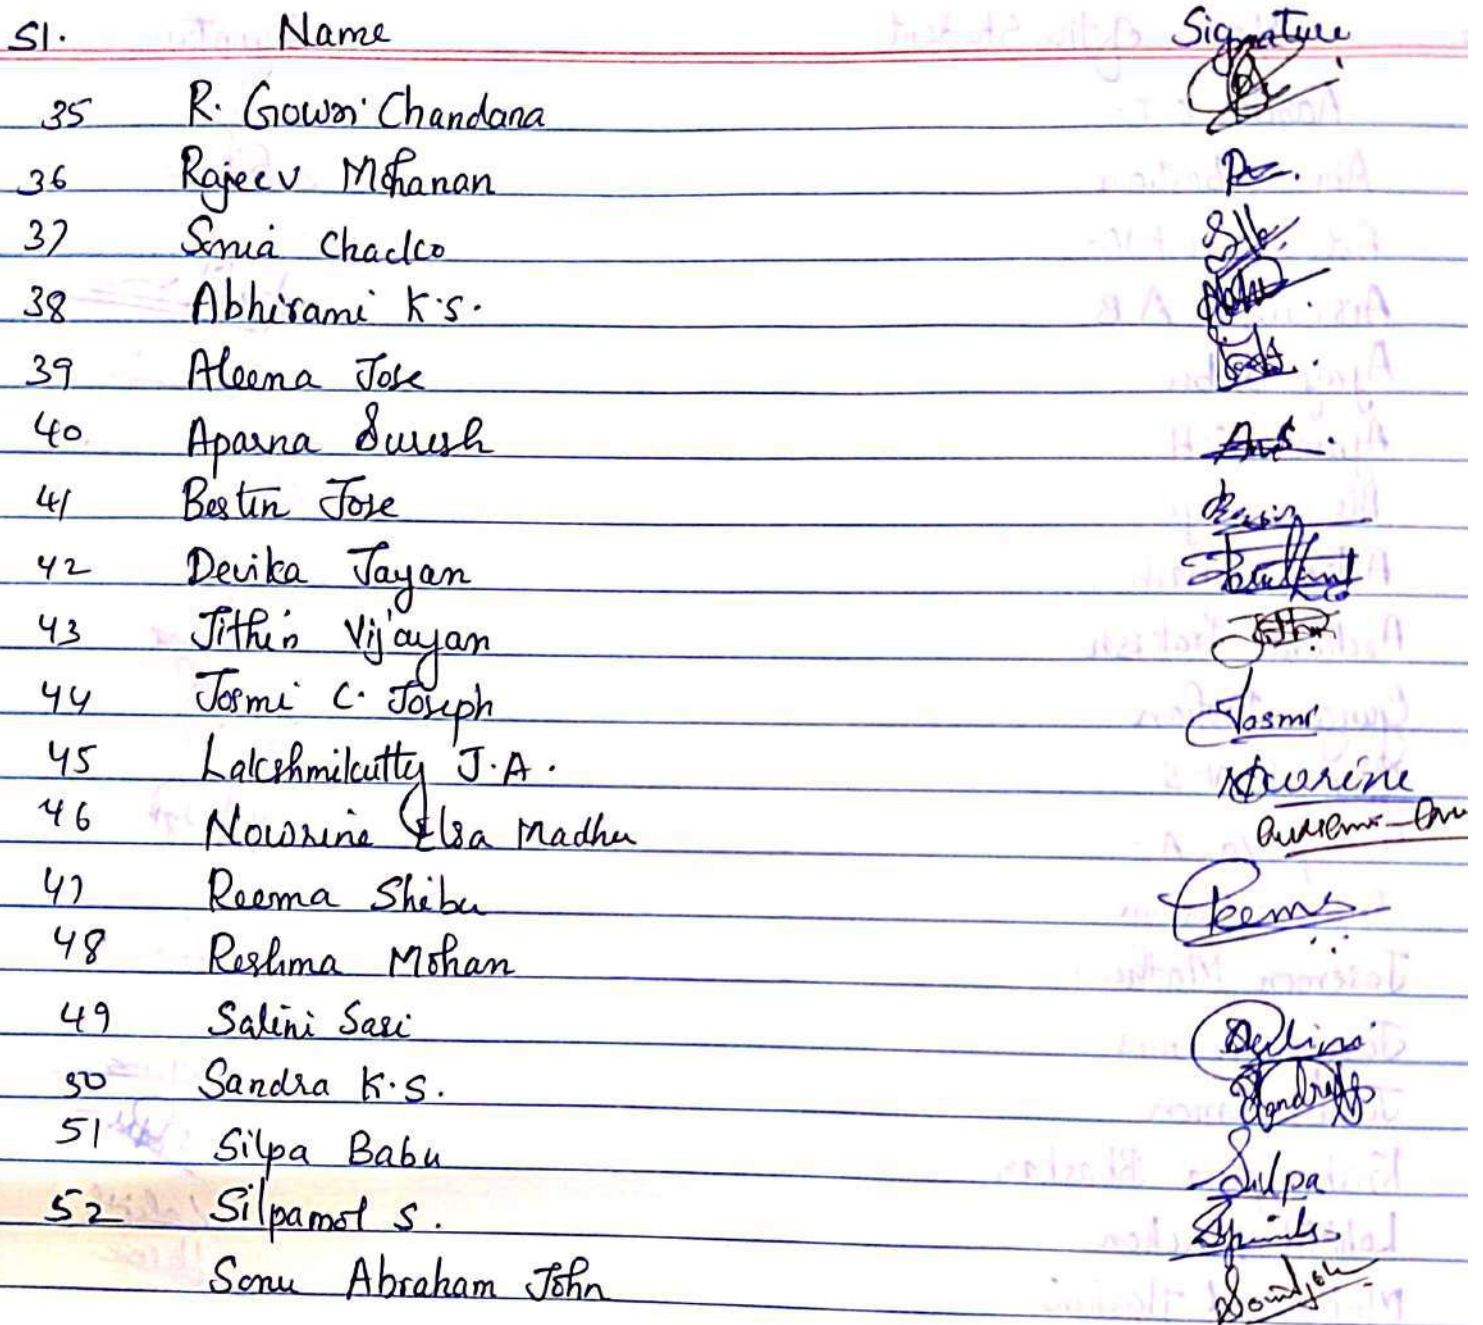 Sl. Name Signature
35 R. Gowri Chandana
36 Rajeev Mohanan
37 Sonia Chacko
38 Abhirami K.S.
39 Aleena Jose
40 Aparna Suresh A.S.
41 Bestin Jose
42 Devika Jayan
43 Jithin Vijayan Jithin
44 Josmi C. Joseph Josmi
45 Lakshmikutty J.A. Nowrine
46 Nowrine Elsa Madhu
47 Reema Shibu Reema
48 Reshma Mohan
49 Salini Sasi Salini
50 Sandra K.S. Sandra
51 Silpa Babu Silpa
52 Silpamol S.
Sonu Abraham John